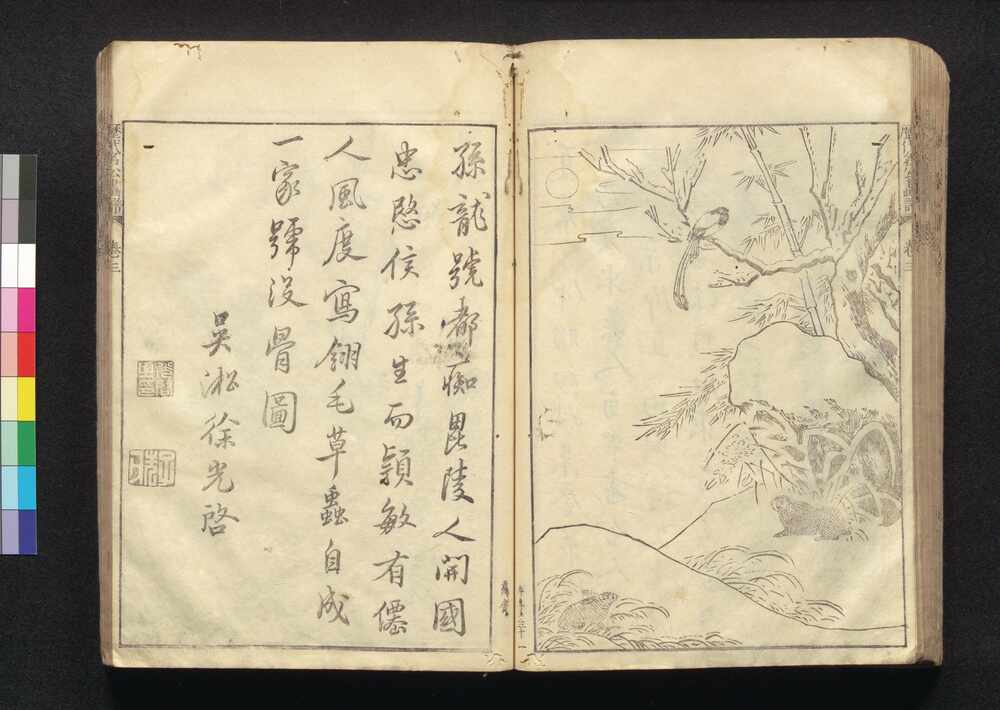 孫龍號都癡毘陵人開國
忠愍侯孫生而穎敏有僊
人風度寫翎毛草蟲自成
一家號沒骨圖
吳淞徐光啓
卷三
卷三